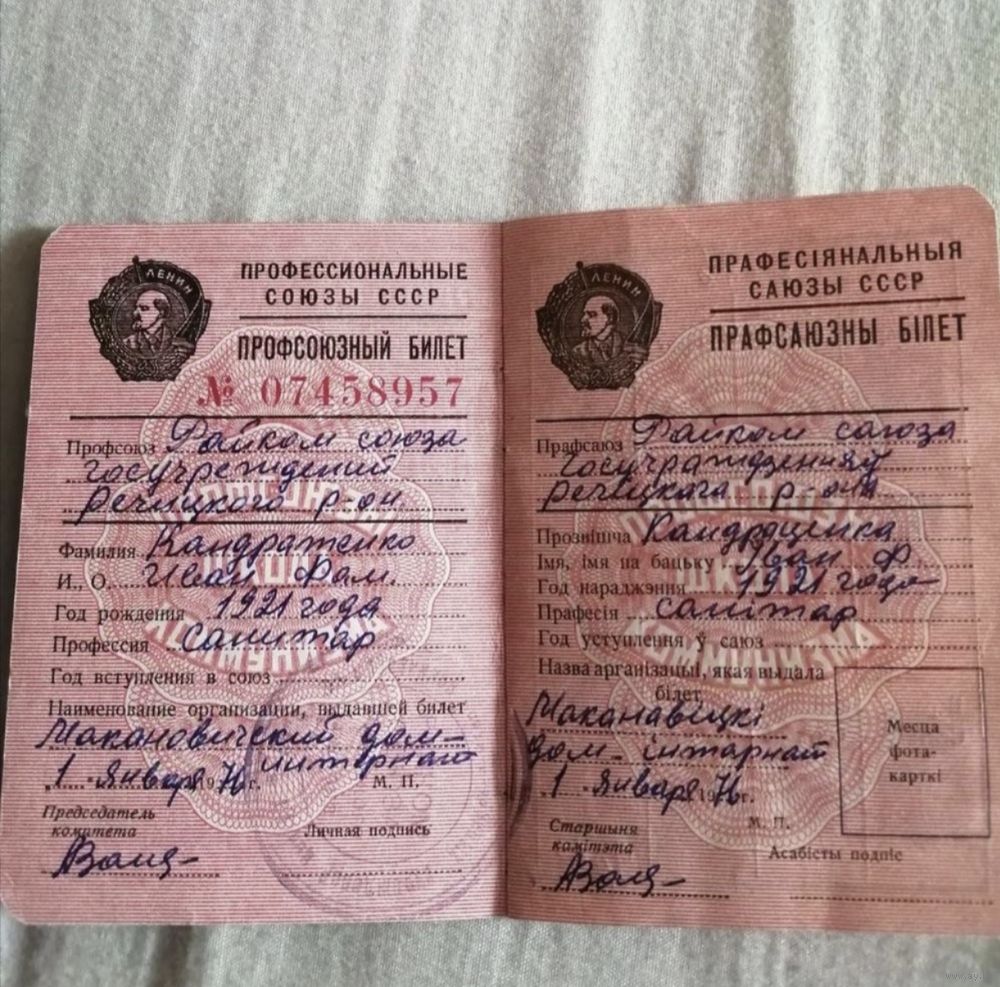 ЛЕНИН
ПРОФЕССИОНАЛЬНЫЕ
СОЮЗЫ СССР
ПРОФСОЮЗНЫЙ БИЛЕТ
№ 07458957
Профсоюз Райком союза
госучреждений
речицкого р-он
Фамилия Кандратенко
И., О. Иван Фам.
Год рождения 1921 года
Профессия санитар
Год вступления в союз
Наименование организации, выдавшей билет
Макановичский дом-
интернат
1 января 1976 г.
М. П.
Председатель
комитета
Личная подпись
ЛЕНИН
ПРАФЕСІЯНАЛЬНЫЯ
САЮЗЫ СССР
ПРАФСАЮЗНЫ БІЛЕТ
Прафсаюз Райком саюза
госучраждзенняў
речицкага р-она
Прозвішча Кандраценка
Імя, імя па бацьку Іван Ф.
Год нараджэння 1921 года
Прафесія санітар
Год уступлення ў саюз
Назва арганізацыі, якая выдала
білет
Маканавіцкі
дом-інтэрнат
1 января 1976
М. П.
Месца
фота-
карткі
Старшыня
камітэта
Асабісты подпіс